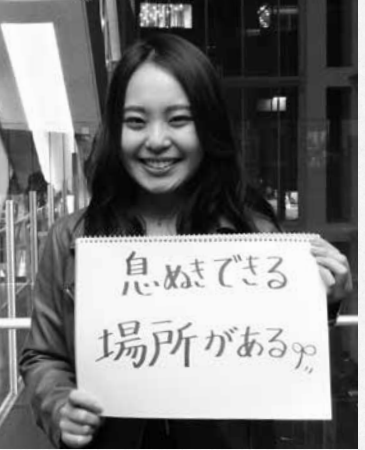 息ぬきできる
場所がある